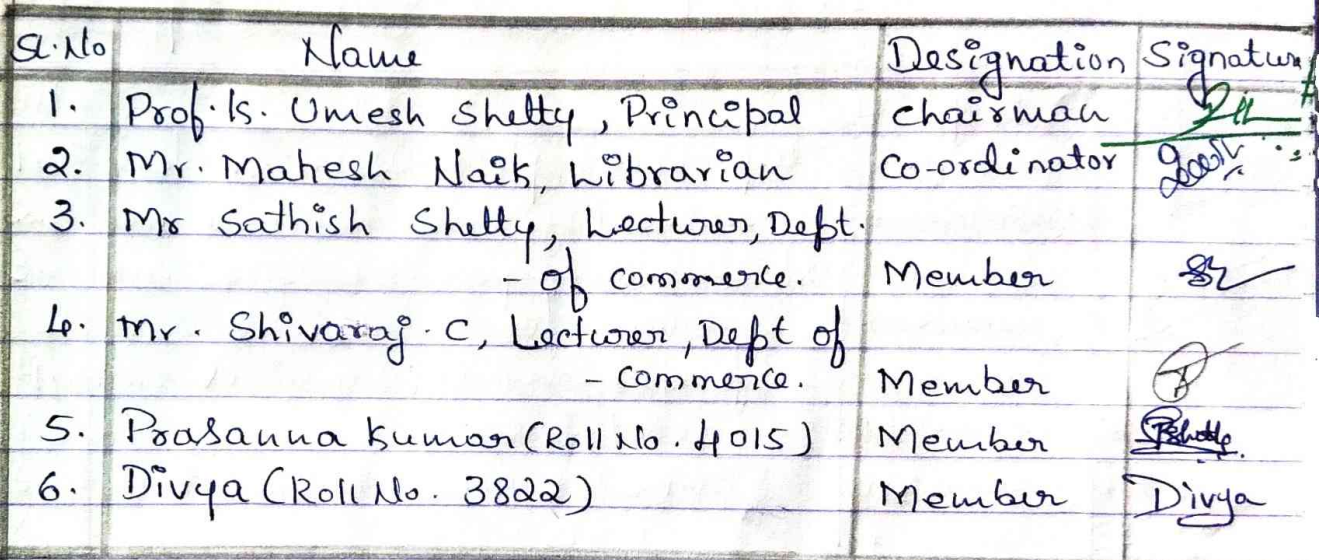 Sl. No Name Designation Signature
1. Prof. K. Umesh Shetty, Principal Chairman
2. Mr. Mahesh Naik, Librarian Co-ordinator
3. Mr Sathish Shetty, Lecturer, Dept.
- of commerce. Member
4. Mr. Shivaraj. C, Lecturer, Dept of
- commerce. Member
5. Prasanna Kumar (Roll No. 4015) Member
6. Divya (Roll No. 3822) Member Divya